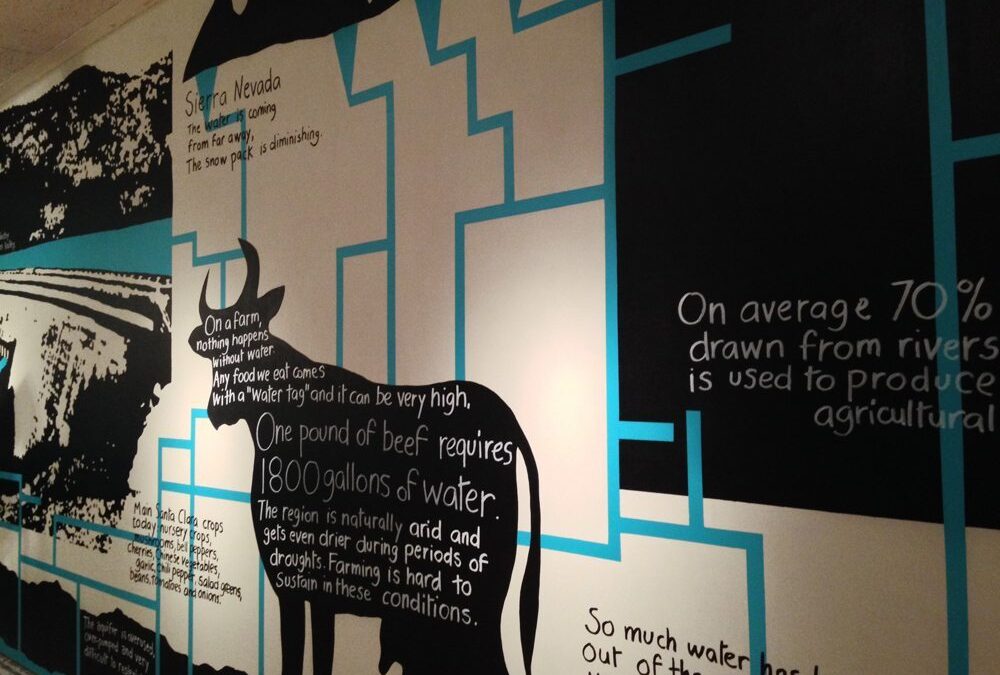 Sierra Nevada
The water is coming
from far away,
The snow pack is diminishing.
On a farm,
nothing happens
without water.
Any food we eat comes
with a "water tag" and it can be very high.
One pound of beef requires
1800 gallons of water.
The region is naturally arid and
gets even drier during periods of
droughts. Farming is hard to
sustain in these conditions.
On average 70%
drawn from rivers
is used to produce
agricultural
Main Santa Clara crops
today: nursery crops,
mushrooms, bell peppers,
cherries, Chinese vegetables,
garic, chili pepper, salad greens,
beans, tomatoes and onions.
The aquifer is overused,
over-pumped and very
difficult to
So much water has
out of the